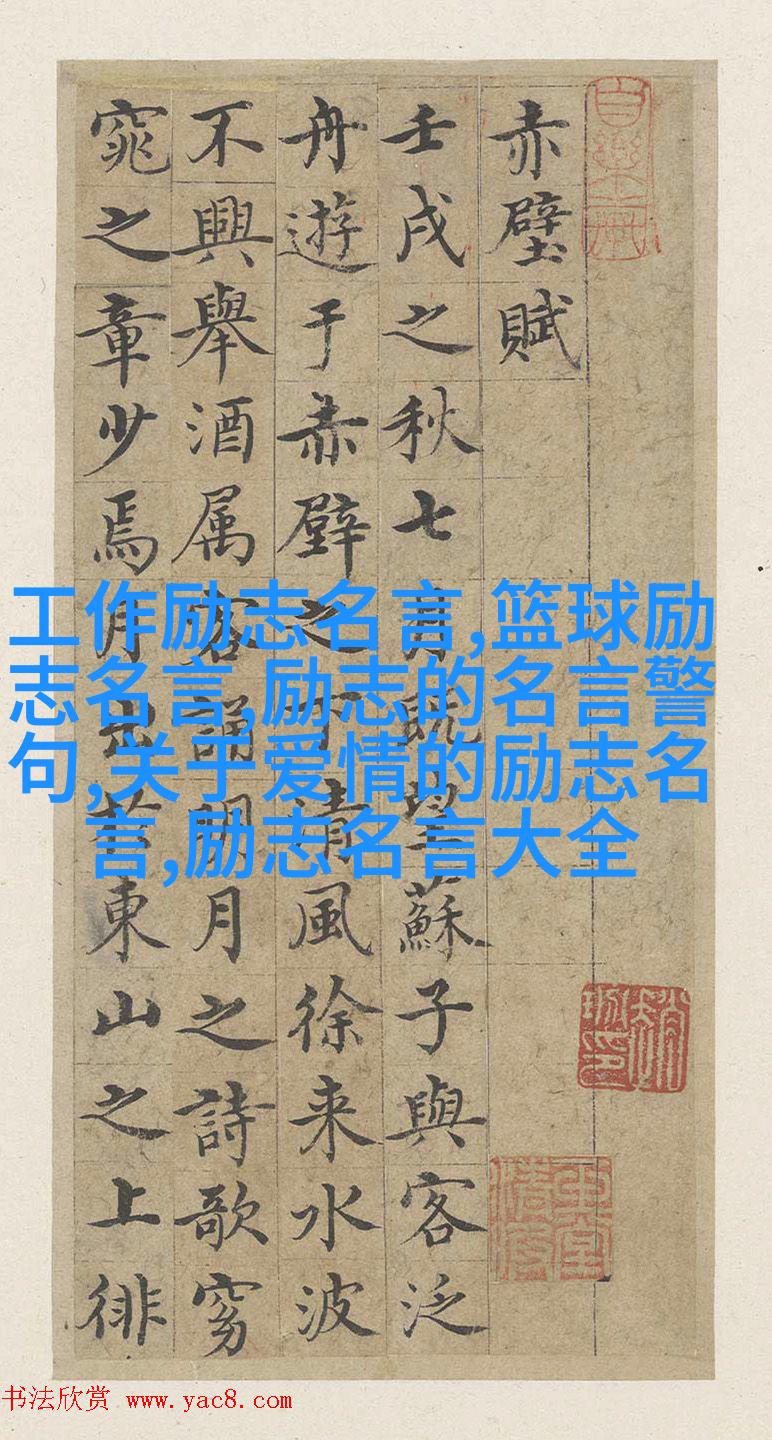 赤壁賦
壬戌之秋七月既望蘇子與客泛
舟遊于赤壁之下清風徐来水波
不興舉酒属客誦明月之詩歌窈
窕之章少焉月出於東山之上徘
工作励志名言,篮球励
志名言,励志的名言警
句,关于爱情的励志名
言,励志名言大全
书法欣赏 www.yac8.com